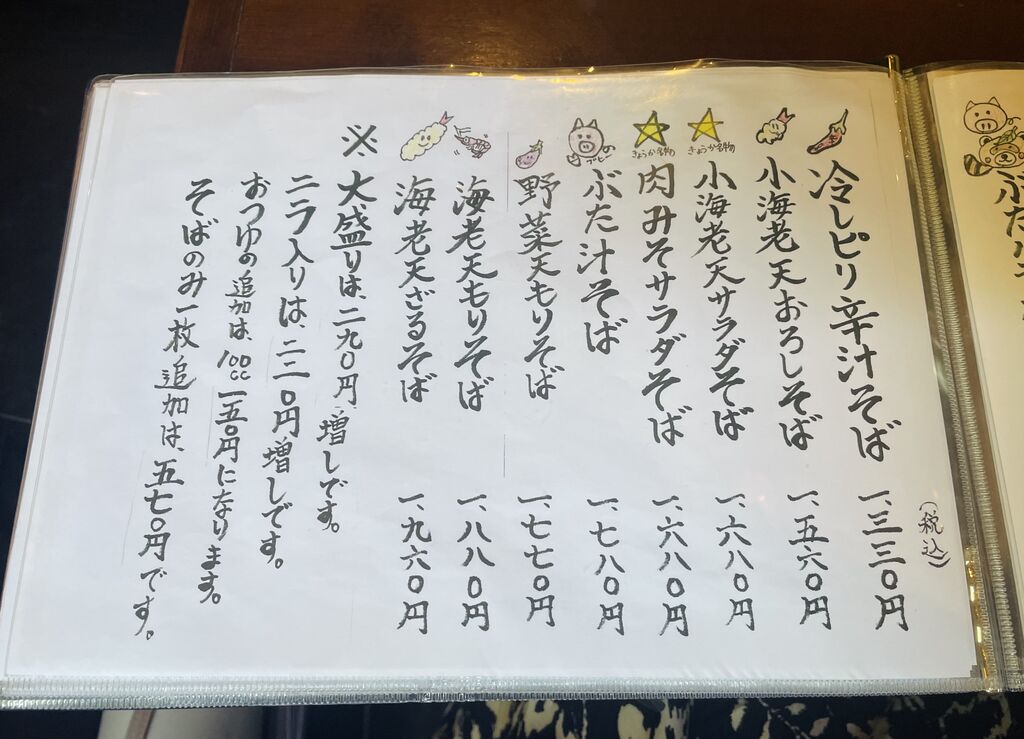 (税込)
冷しピリ辛汁そば 一、三三〇円
小海老天おろしそば 一、五六〇円
きょうか名物
小海老天サラダそば 一、六八〇円
きょうか名物
肉みそサラダそば 一、六八〇円
ブヒ
ぶた汁そば 一、七八〇円
野菜天もりそば 一、七七〇円
海老天もりそば 一、八八〇円
海老天ざるそば 一、九六〇円
※、大盛りは、二九〇円増しです。
ニラ入りは、二二〇円増しです。
おつゆの追加は、100cc 一五〇円になります。
そばのみ一枚追加は、五七〇円です。